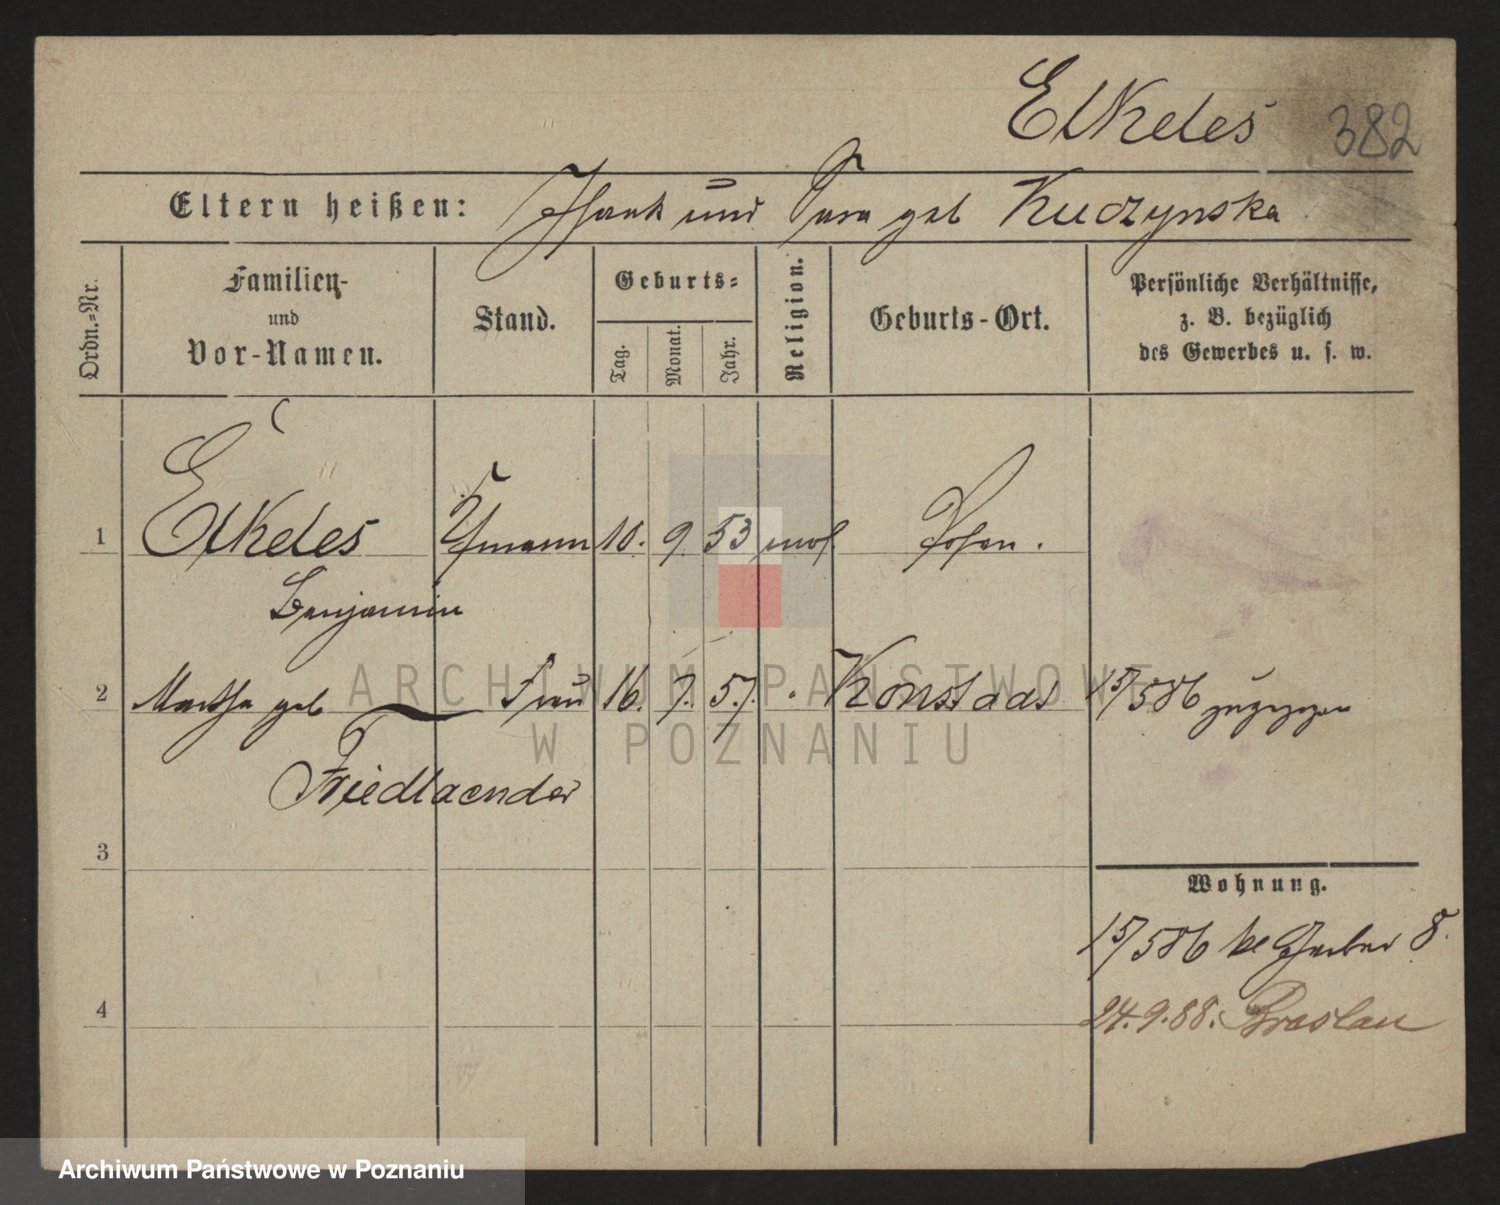 Elkeles 382
Eltern heißen: Isaak und Sara geb Kuczynska
Ordn.-Nr.
Familien-
und
Vor-Namen.
Stand.
Geburts-
Tag.
Monat.
Jahr.
Religion.
Geburts-Ort.
Persönliche Verhältnisse,
z. B. bezüglich
des Gewerbes u. s. w.
1 Elkeles Kfmann 10. 9. 53 mos. Posen.
Benjamin
2 Martha geb Frau 16. 7. 57. Konstadt 15/5 86 zugezogen
Friedlaender
3
Wohnung.
15/5 86 Kl Gerber 8.
4
24.9.88. Breslau
ARCHIWUM PAŃSTWOWE
W POZNANIU
Archiwum Państwowe w Poznaniu